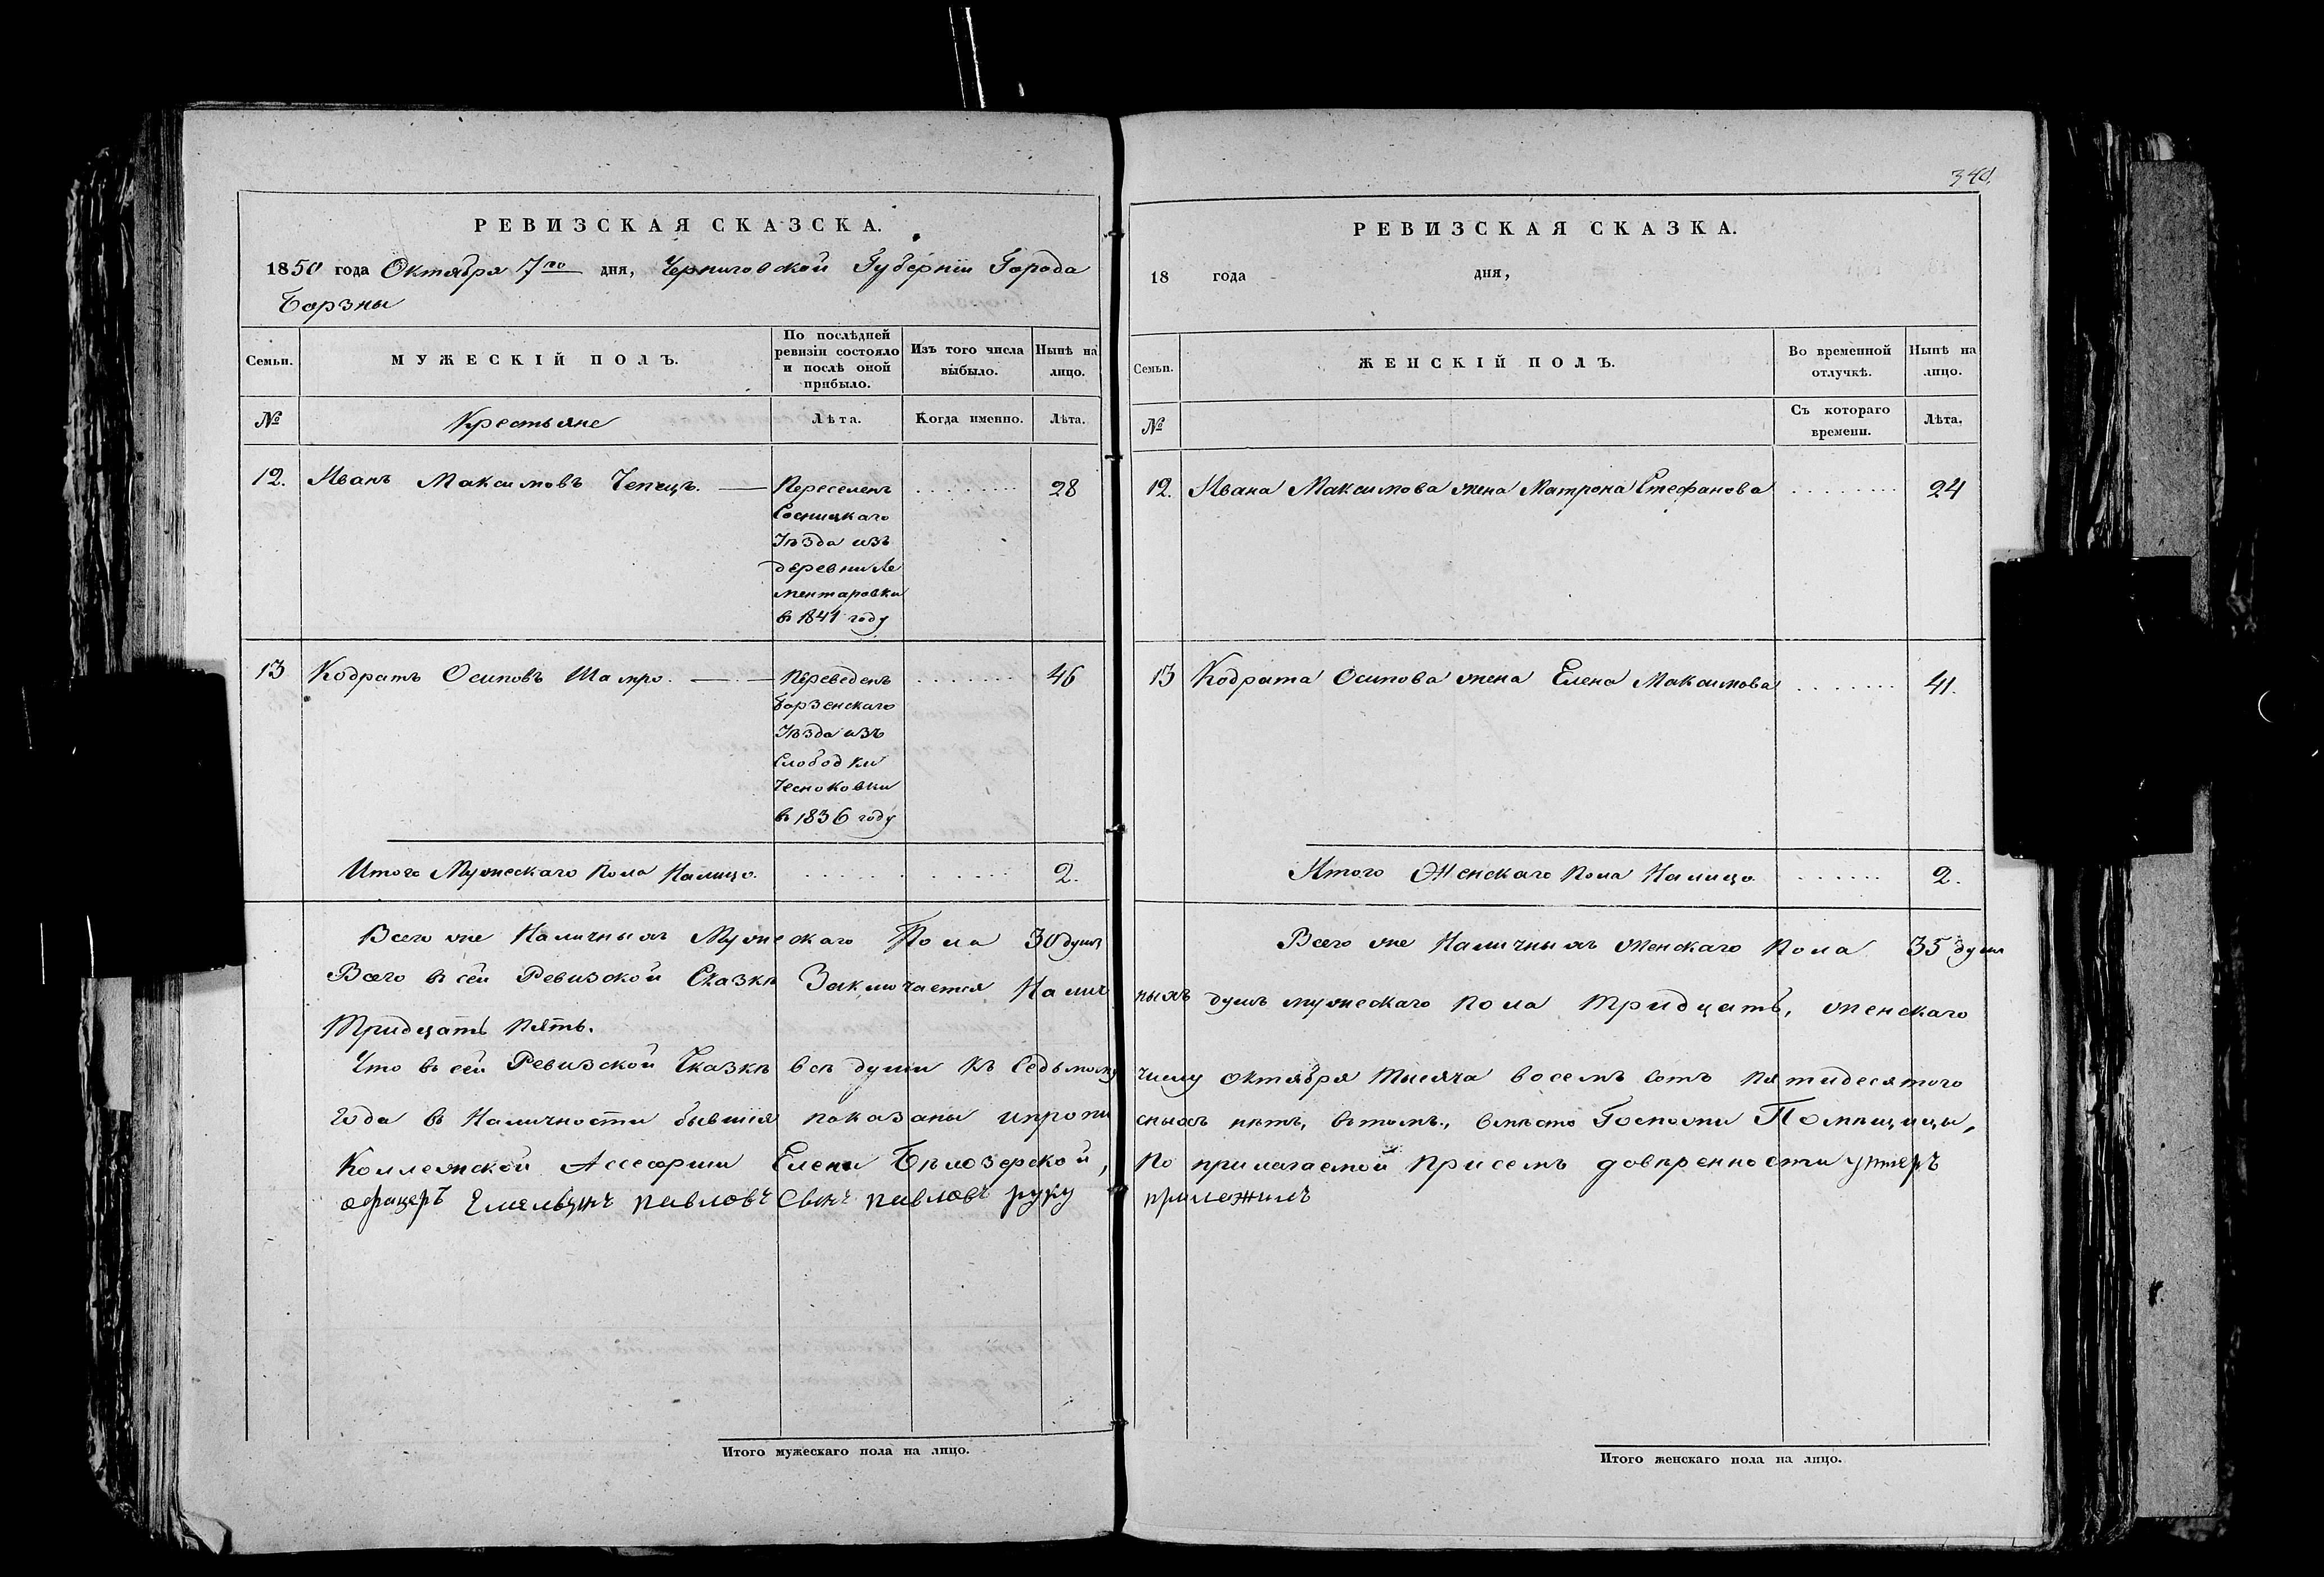 РЕВИЗСКАЯ СКАЗСКА.
1850 года Октября 7го дня, Черниговской Губерніи Города
Борзны
Семьи.
МУЖЕСКІЙ ПОЛЪ.
По послѣдней
ревизіи состояло
и послѣ оной
прибыло.
Изъ того числа
выбыло.
Нынѣ на
лицо.
№
Крестьяне
Лѣта.
Когда именно.
Лѣта.
12. Иванъ Максимовъ Чепецъ. Переселенъ 28
Сосницкаго
Уѣзда изъ
деревни Ле
ментаровки
в 1841 году
13 Кодратъ Осиповъ Шамро. Переведенъ 46
Борзенскаго
Уѣзда изъ
Слободки
Чесноковки
в 1836 году
Итого Мужескаго пола Налицо. 2.
Всего же Наличныхъ Мужескаго Пола 30 душъ
Всего въ сей Ревизской Сказкѣ Заключается Налич
Тридцать пять.
Что въ сей Ревизской Сказкѣ всѣ души къ Седьмому
Года въ Наличности бывшія показаны и пропи
Коллежской Ассесорши Елены Бѣлозерской,
офицеръ Емельянъ павловъ Сынъ павловъ руку
Итого мужескаго пола на лицо.
340.
РЕВИЗСКАЯ СКАЗКА.
18 года дня,
Семьи.
ЖЕНСКІЙ ПОЛЪ.
Во временной
отлучкѣ.
Нынѣ на
лицо.
№
Съ котораго
времени.
Лѣта.
12. Ивана Максимова жена Матрона Стефанова 24
13 Кодрата Осипова жена Елена Максимова 41.
Итого Женскаго пола Налицо 2.
Всего же Наличныхъ Женскаго пола 35 душъ
ныхъ душъ мужескаго пола тридцать, женскаго
числу октября тысяча восемь сотъ пятидесятого
сныхъ нѣтъ, въ томъ, вмѣсто Госпожи Помѣщицы,
По прилагаемой присемъ довѣренности унтеръ
приложилъ
Итого женскаго пола на лицо.